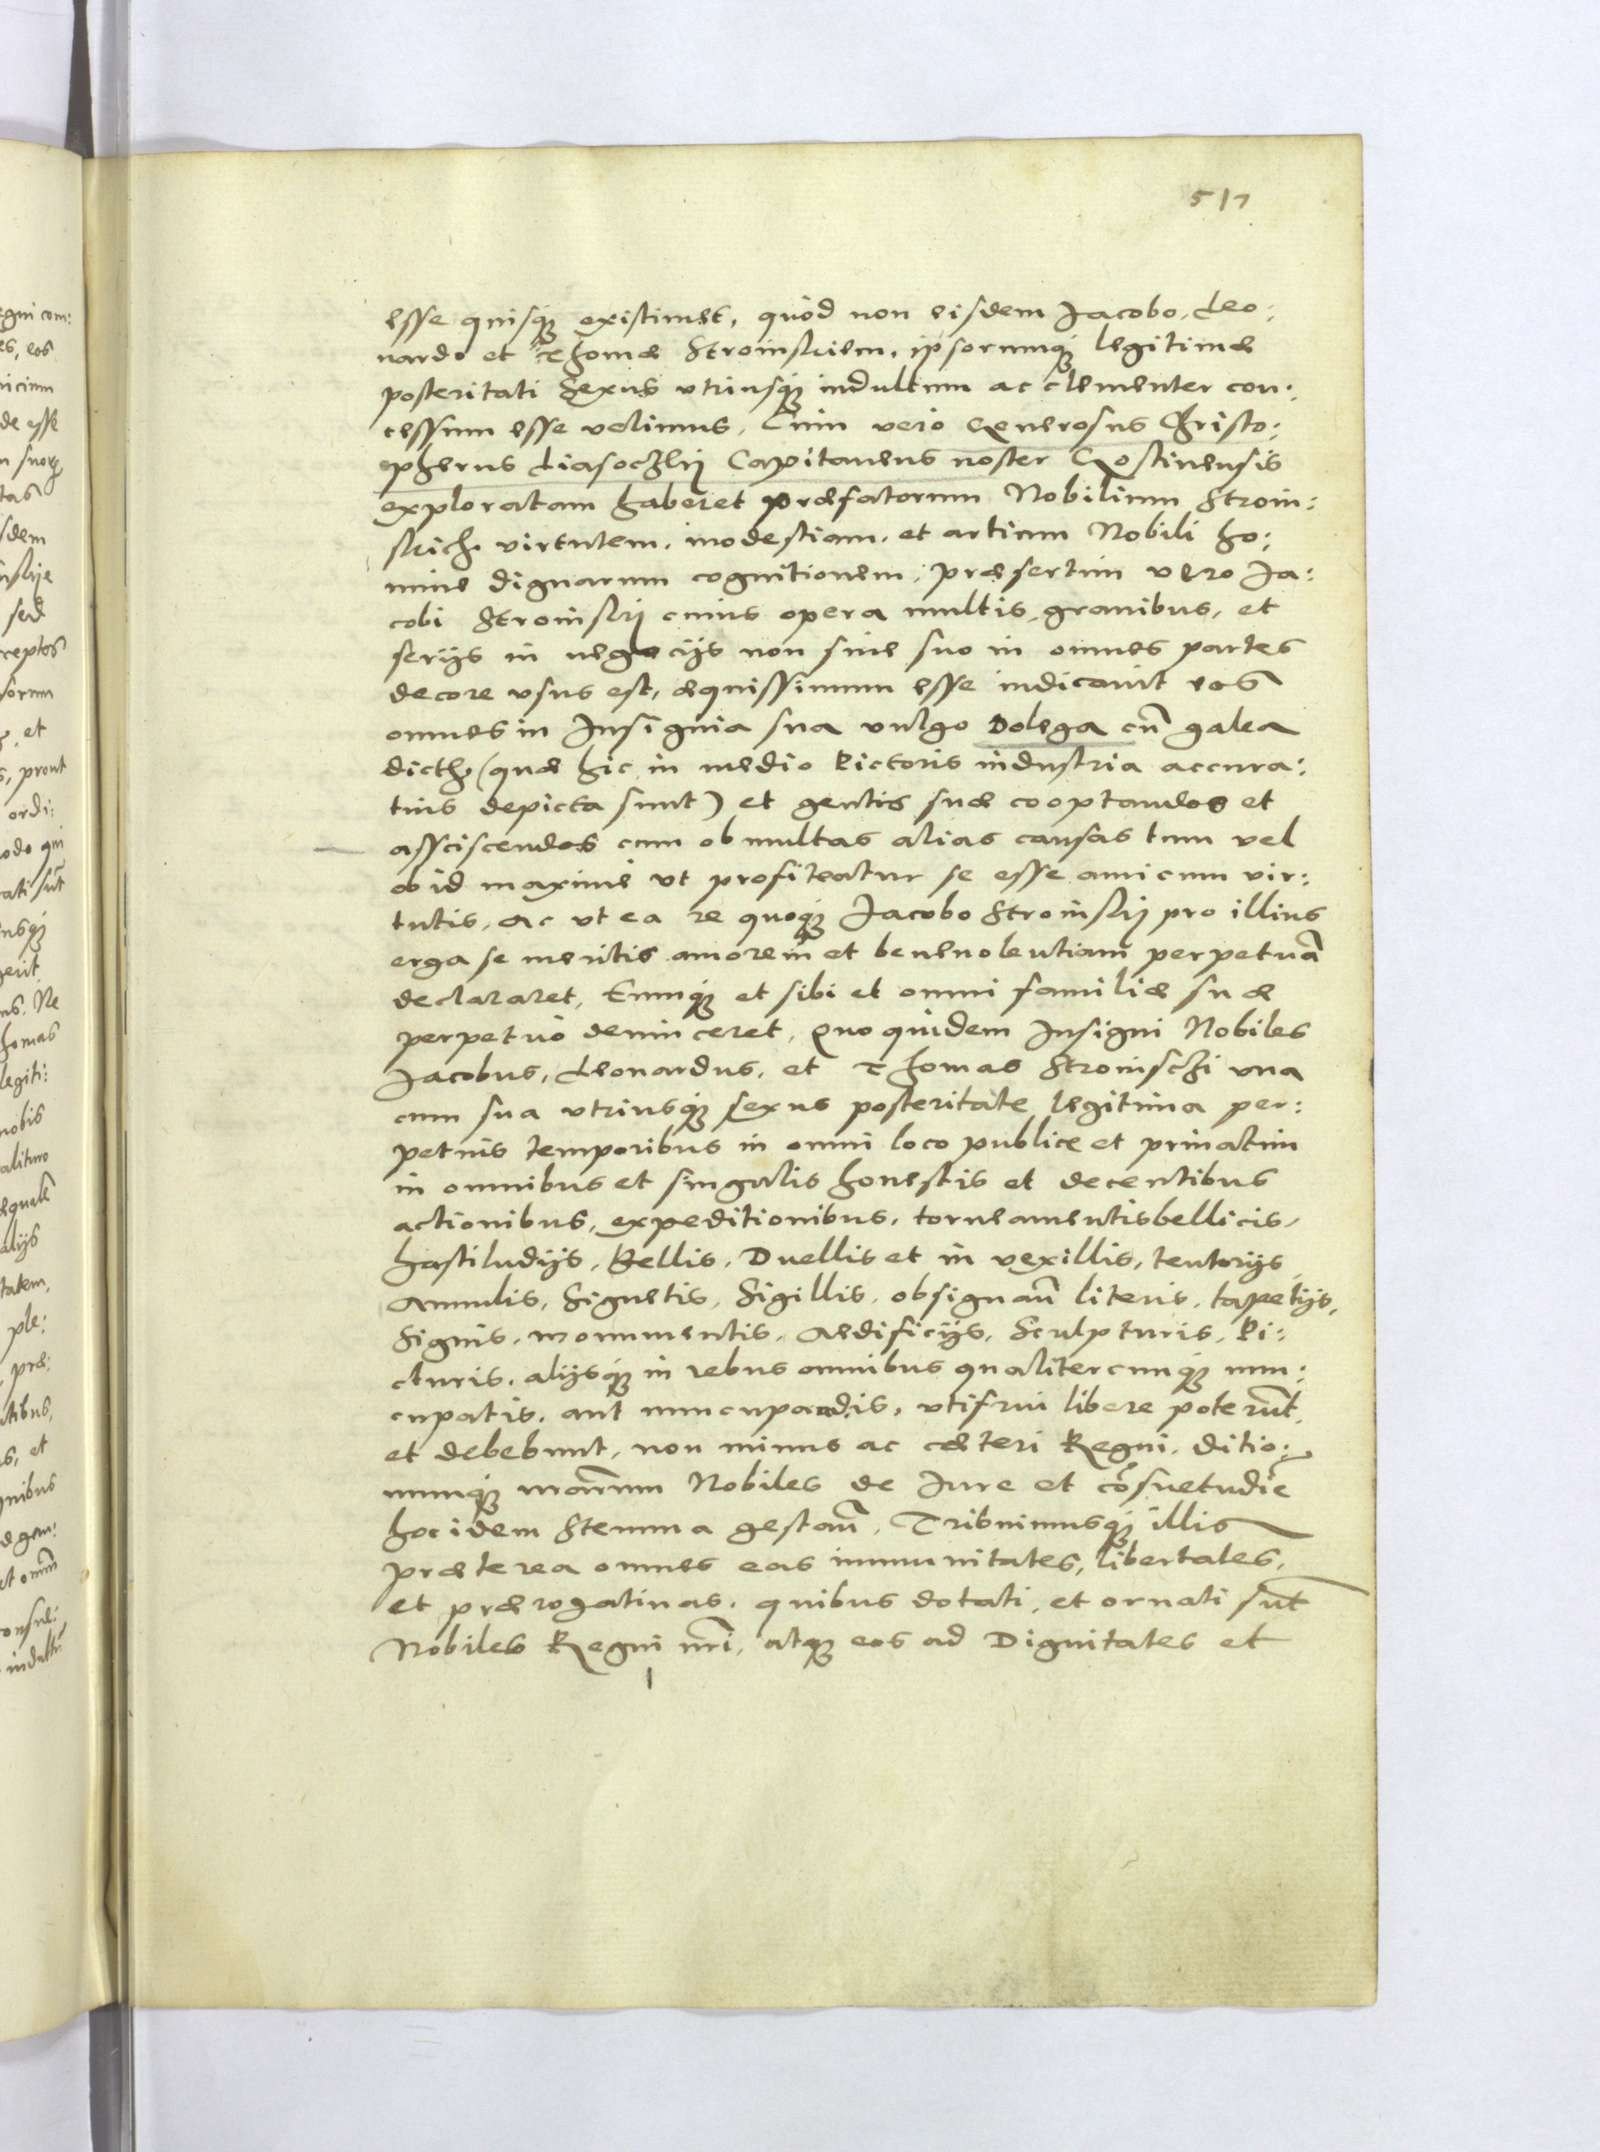 517
esse quisq́ existimet, quòd non eisdem Jacobo, Leo:
nardo et Thomæ Stroinskiem, ipsorumq́ legitimæ
posteritati Sexus vtriusq́ indultum ac clementer con:
cessum esse uelimus. Cum uero Generosus Christo:
pherus Liasoczkij Capitaneus noster Gostinensis
exploratam haberet præfatorum Nobilium Stroin:
skich virtutem, modestiam, et artium Nobili ho:
mine dignarum cognitionem, præsertim uero Ja:
cobi Stroinskij cuius opera multis grauibus, et
serijs in negocijs non sine suo in omnes partes
decore vsus est, æquissimum esse iudicauit eos
omnes in Insignia sua vulgo Dolega cū galea
dicta (quæ hic in medio Pictoris industria accura:
tius depicta sunt) et gentis suæ cooptandos et
assciscendos cum ob multas alias causas tum uel
ob id maxime vt profiteatur se esse amicum vir:
tutis, ac vt ea re quoq́ Jacobo Stroinskij pro illius
erga se meritis amorem et beneuolentiam perpetuā
declararet, Eumq́ et sibi et omni familiæ suæ
perpetuo deuinceret, Quo quidem Insigni Nobiles
Jacobus, Leonardus, et Thomas Stroinschi vna
cum sua vtriusq́ sexus posteritate legitima per:
petuis temporibus in omni loco publice et priuatim
in omnibus et singulis honestis et decentibus
actionibus, expeditionibus, torneamentis bellicis,
hastiludijs, Bellis, Duellis et in vexillis, tentorijs,
Annulis, Signetis, Sigillis, obsignan̄ literis, tapetijs,
Signis, monumentis, Aedificijs, Sculpturis, Pi:
cturis, alijsq́ in rebus omnibus qualitercunq́ nun:
cupatis, aut nuncupandis, vtifrui libere poterūt
et debebunt, non minus ac cæteri Regni, ditio:
numq́ nrārum Nobiles de Jure et cōsuetudīe
hoc idem Stemma gestan̄. Tribuimusq́ illis
præterea omnes eas immunitates, libertates,
et prærogatiuas, quibus dotati, et ornati sūt
Nobiles Regni nrī, atq́ eos ad Dignitates et